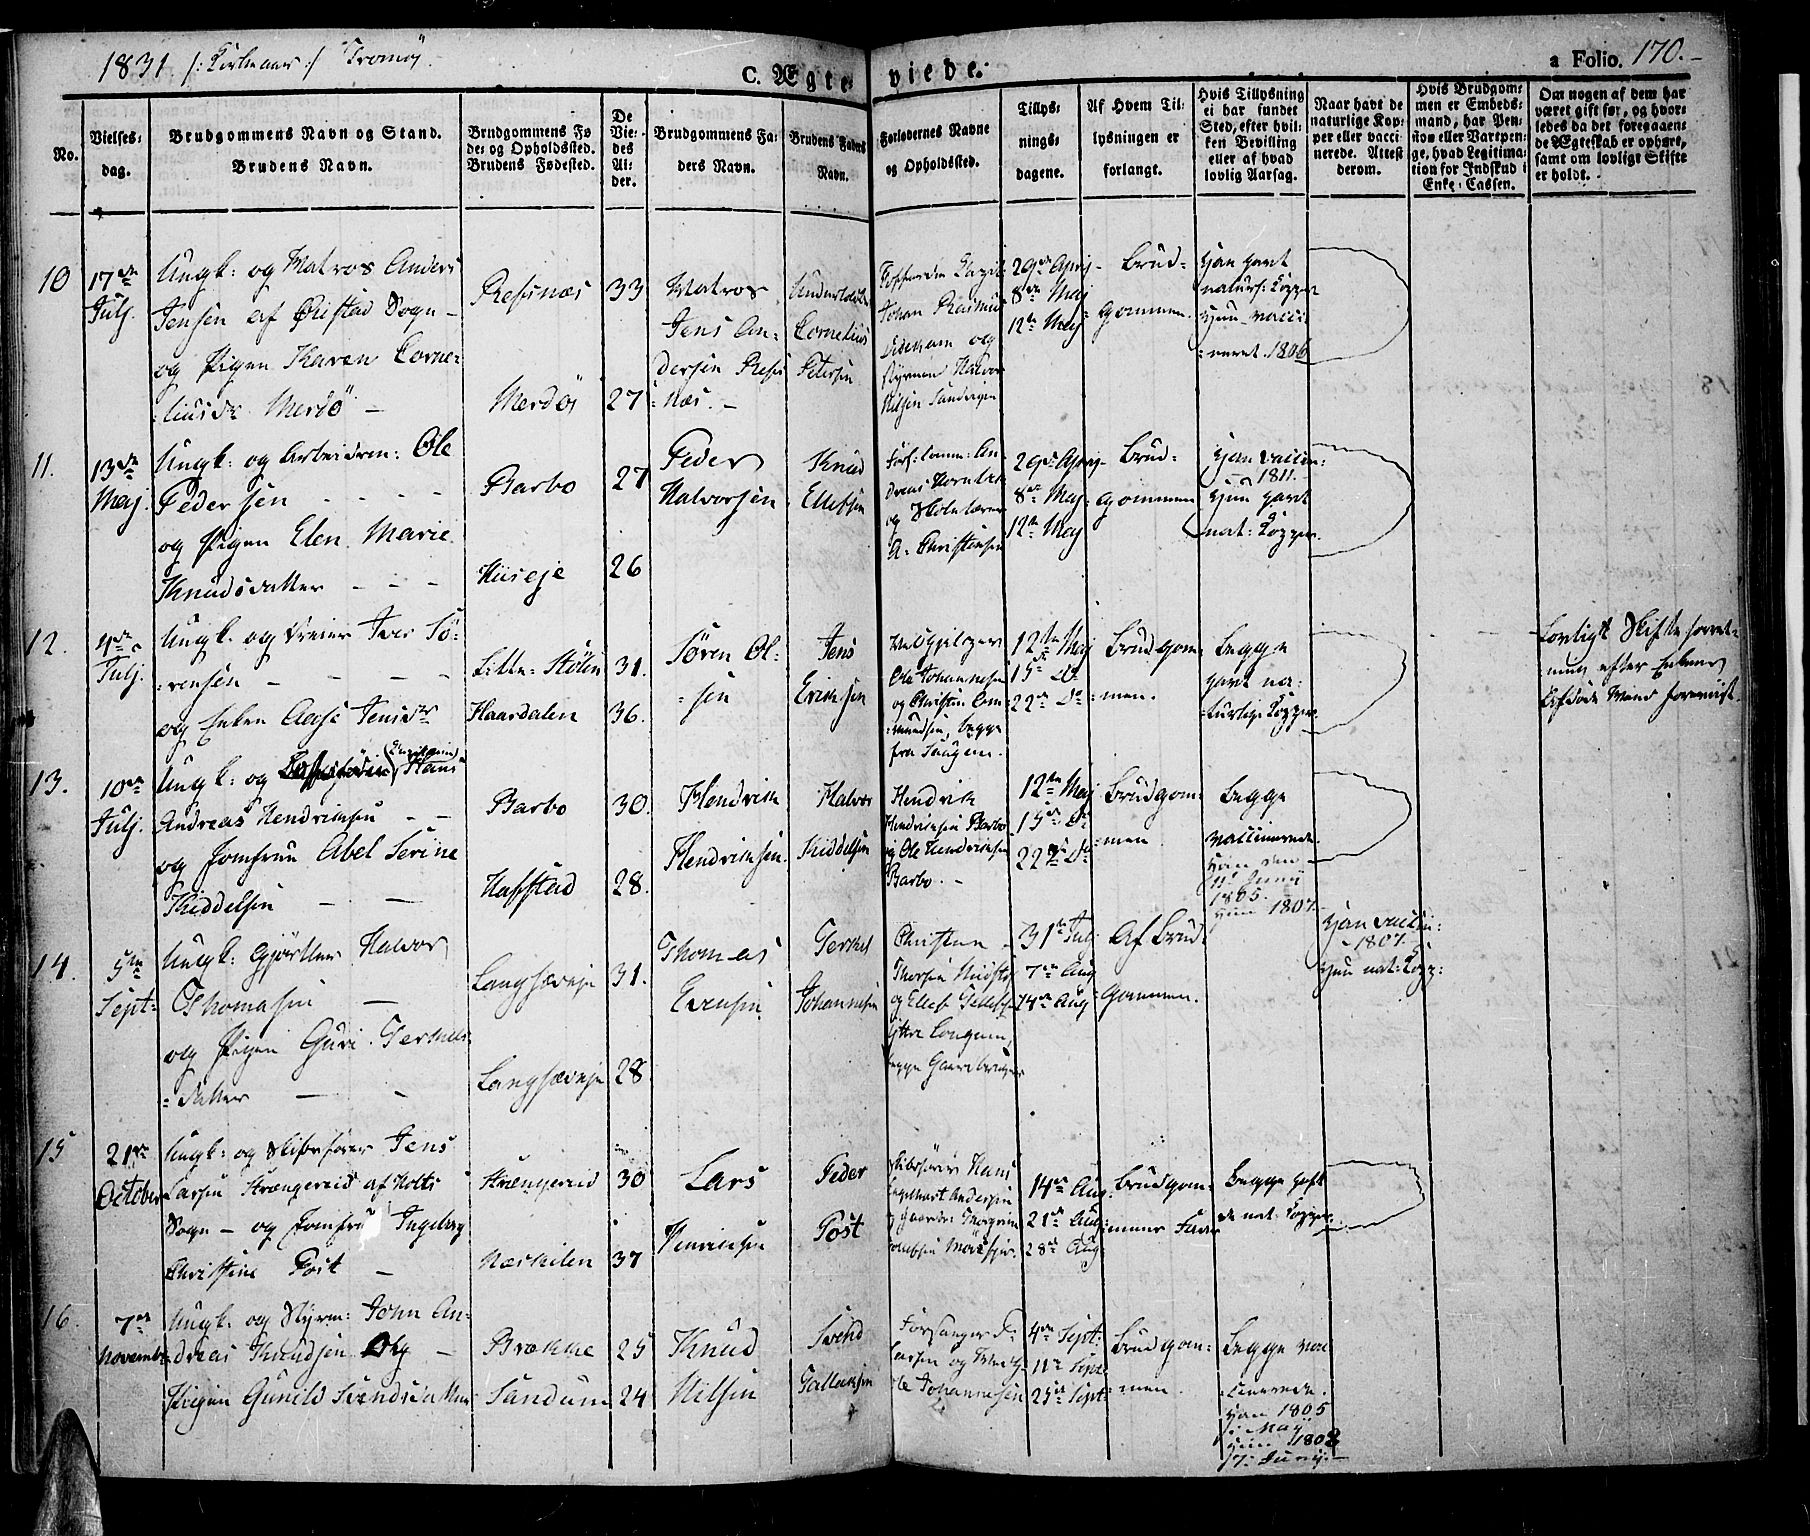 1831 Tromöy
C. Ægteviede.
a Folio. 170.
No.
Vielses-
dag.
Brudgommens Navn og Stand.
Brudens Navn.
Brudgommens Fø
de- og Opholdssted.
Brudens Fødested.
De
Vie-
des
Al-
der.
Brudgommens Fa-
ders Navn.
Brudens Faders
Navn.
Forlovernes Navne
og Opholdssted.
Tillys-
nings-
dagene.
Af Hvem Til-
lysningen er
forlangt.
Hvis Tillysning
ei har fundet
Sted, efter hvil-
ken Bevilling
eller af hvad
lovlig Aarsag.
Naar havt de
naturlige Kop-
per eller vacci-
nerede. Attest
derom.
Hvis Brudgom-
men er Embeds-
mand, har Pen-
sion eller Vartpen-
ge, hvad Legitima-
tion for Indskud i
Enke-Cassen.
Om nogen af dem har
været gift før, og hvor-
ledes da det foregaaen-
de Ægteskab er ophørt,
samt om lovligt Skifte
er holdt.
10
17de
Julj.
Ungk: og Matros Anders
Jensen af Öiestad Sogn -
og Pigen Karen Corne-
:liusdr Merdö -
Refsnæs 33
Merdöi 27
Matros
Jens An-
dersen Refs
:næs. -
Cornelius
Petersen
Johan Rasmus
Videham og
Styrmen Halvor
Nilsen
29de April
8de Maj
12te Maj
Brud-
gommen.
Han havt
naturl: Kopper
Hun vacci
:neret. 1806
11.
13de
Maj.
Ungk: og Arbeidsm: Ole
Pedersen - - - -
og Pigen Elen Marie
Knudsdatter - - -
Barbo 27
Hüseje 26
Peder
Halvorsen
Knud
Ellefsen
dreas Hornbek
og Skolelærer
A. Christensen
29de April
8de Maj
12te Maj
Brud-
gommen
Han vaccin:
1811.
Hun havt
nat: Kopper.
12.
4de
Julj.
Ungk. og Dreier Sö-
:rensen - - - -
og Enken Aase Jensdr
Lille-Stölen 31.
Haardalen 36.
Sören Ol-
:sen
Jens
Eriksen
Ole Johannesen
og Christen Om
mundsen, begge
fra Saugene.
12te Maj
15de do
22de do
Brudgom-
:men.
Begge
havt na-
:turlige Kopper
Lovligt Skifteforret-
ning efter Enkens
afdöde Mand foreviist.
13.
10de
Julj.
Ungk: og Hans
Andreas Hendriksen - -
og Jomfrue Abel Serine
Kiddelsen - -
Barbo 30.
Haffstad 28.
Hendrik
Hendriksen.
Halvor
Kiddelsen
Hendrik
Hendriksen Barbo
og Ole Hendriksen
Barbo. -
12te Maj
15de do
22de do
Brudgom-
:men
Begge
vaccinerede
Han den
11. Junij
1805.
Hun 1807.
14.
5te
Sept:
Ungk: Gjörtler Halvor
Thomasen -
og Pigen Guri Terkels-
:datter - -
Langsæveje 31.
Langsæveje 28
Thomas
Evensen
Terkel
Johannesen
Christen -
Thorsen
og Ellef
Ytre Longum,
begge Gaardbruger
31te Julj
7de Aug
14de Aug
Af Brud-
gommen.
Han vacci:
1807.
Hun nat: Kopp:
15
21de
October
Ungk: og Skibsförer Jens
Larsen Strængereid af Holts
Sogn - og Jomfrue Ingeborg
Christine Post -
Strængereid 30
Næskilen 37
Lars
Henriksen
Peder
Post
Skibsförer Hans
Engelhart Andersen
14de Aug
21de Aug
28de Aug:
Brudgom-
mens Fader
Begge havt
de nat: Kopper.
16.
7de
November
Ungk: og Styrm: John An-
dreas Knudsen Og -
Pigen Gunild Svendsdatter
Brække 25
Sandum 24
Knud
Nilsen
Svend
Tallaksen
Forsanger
Larsen og
Ole Johannesen
4de Sept:
11te Sept
25de Sept
Brudgom-
:men.
Begge vac
:cinerede.
Han 1805
i Maij
Hun 1808
7. Junij. -